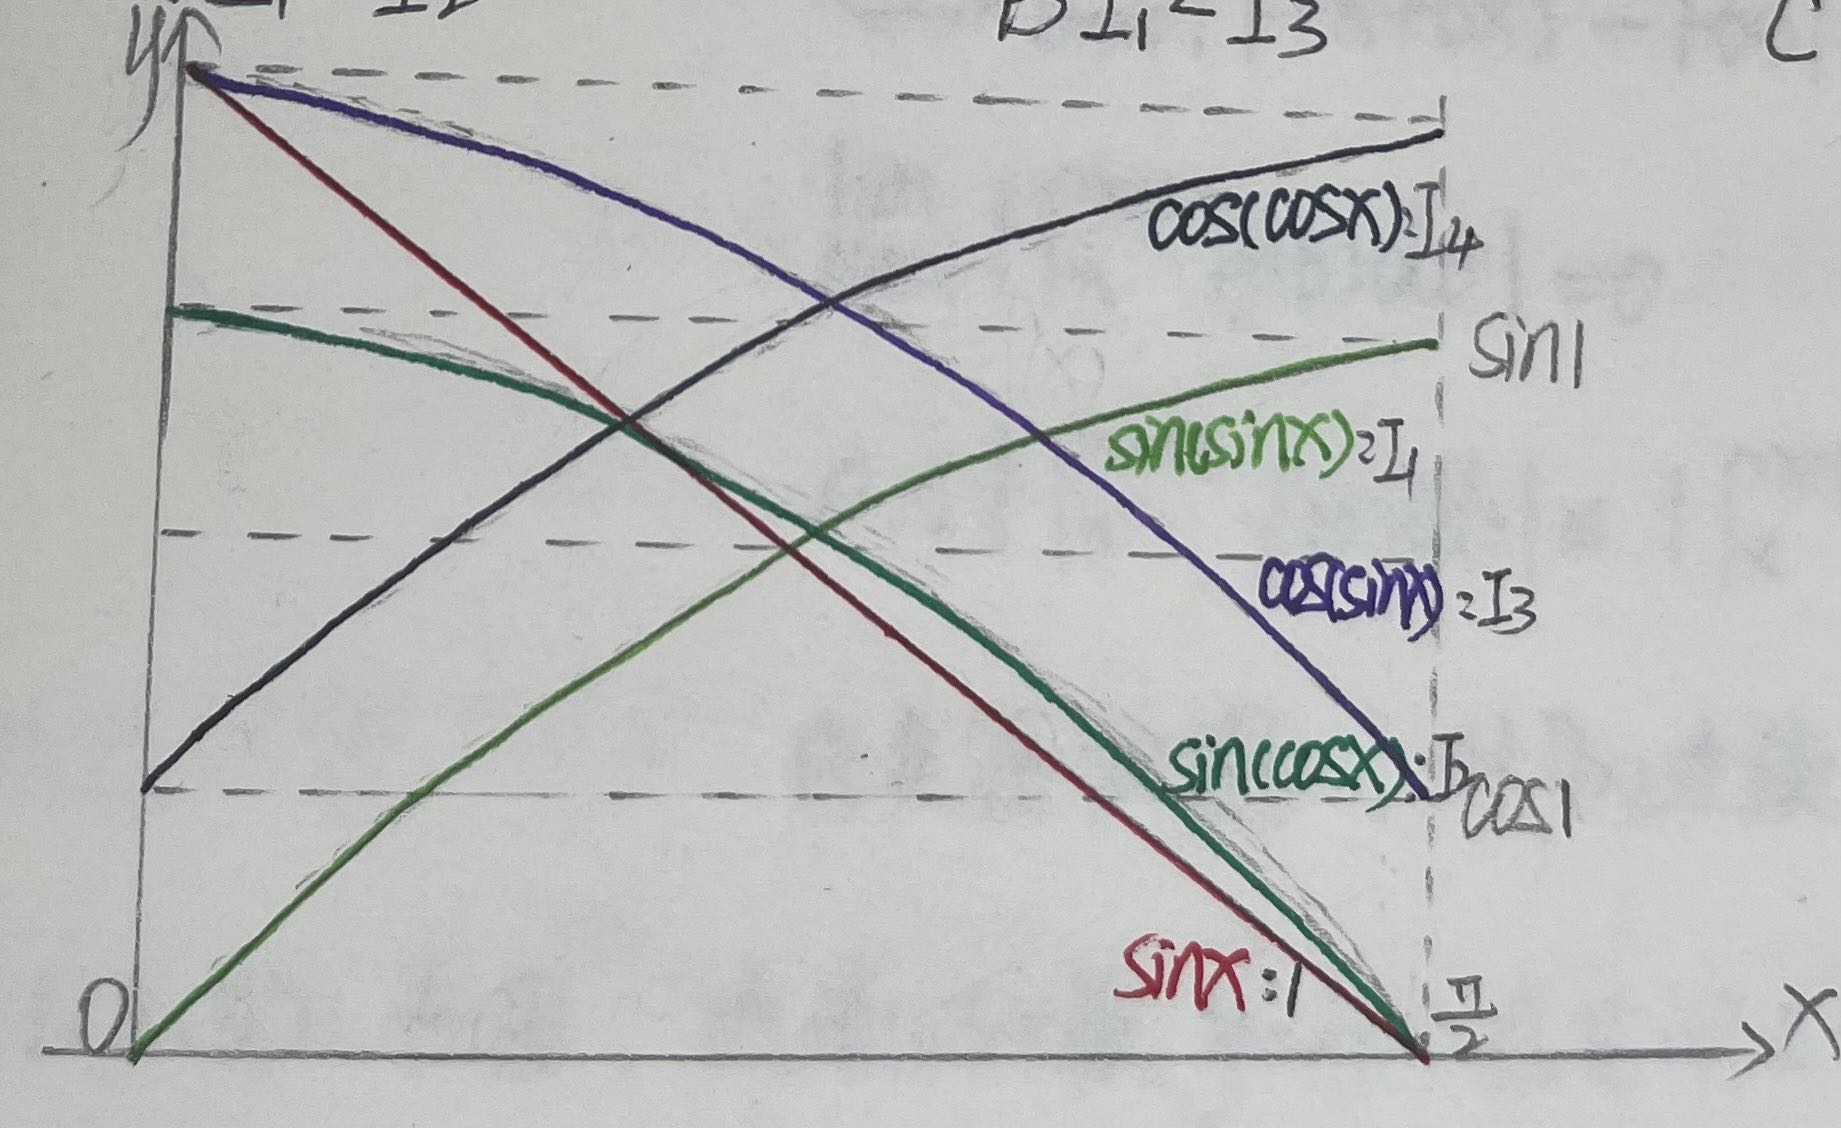 B I₁ = I₃
C
y
cos(cosx): I₄
sin1
sin(sinx): I₁
cos(sinx): I₃
sin(cosx): I₂
cos1
sinx: 1
0
π/2
x